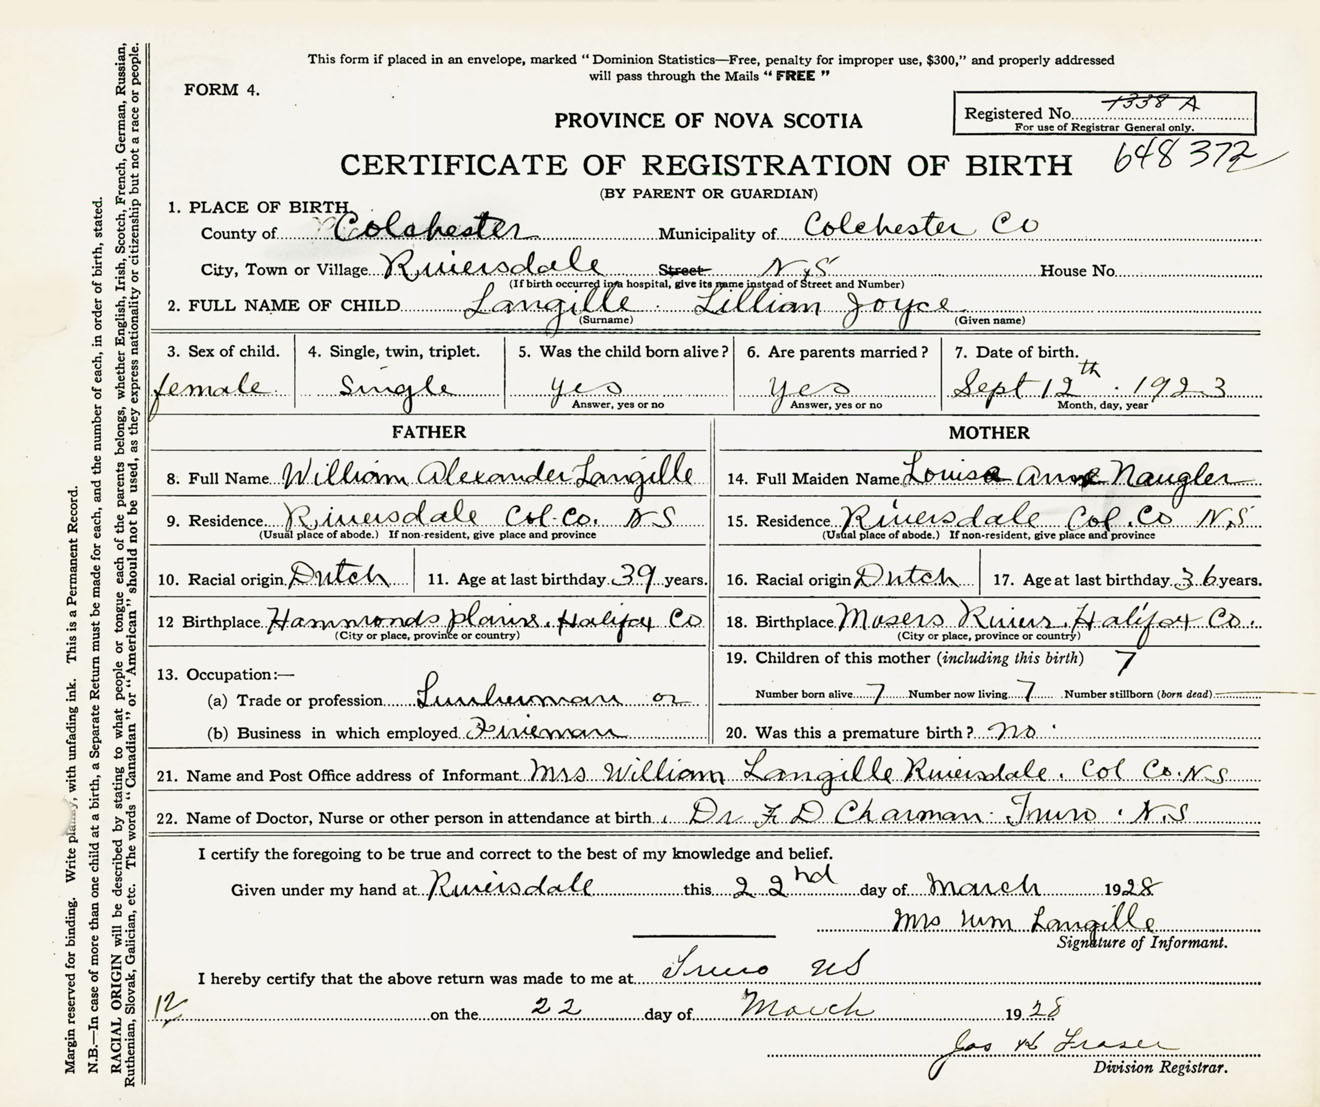 This form if placed in an envelope, marked " Dominion Statistics—Free, penalty for improper use, $300," and properly addressed
will pass through the Mails " FREE "
FORM 4.
Registered No. 1338 A
For use of Registrar General only.
PROVINCE OF NOVA SCOTIA
648372
CERTIFICATE OF REGISTRATION OF BIRTH
(BY PARENT OR GUARDIAN)
1. PLACE OF BIRTH
County of Colchester Municipality of Colchester Co
City, Town or Village Riversdale Street N,S House No.
(If birth occurred in a hospital, give its name instead of Street and Number)
2. FULL NAME OF CHILD Langille Lillian Joyce
(Surname) (Given name)
3. Sex of child. 4. Single, twin, triplet. 5. Was the child born alive? 6. Are parents married? 7. Date of birth.
female single yes yes Sept 12th 1923
Answer, yes or no Answer, yes or no Month, day, year
FATHER MOTHER
8. Full Name William Alexander Langille 14. Full Maiden Name Louisa Anne Naugler
9. Residence Riversdale Col. Co. N S 15. Residence Riversdale Col. Co N,S
(Usual place of abode.) If non-resident, give place and province (Usual place of abode.) If non-resident, give place and province
10. Racial origin Dutch 11. Age at last birthday 39 years. 16. Racial origin Dutch 17. Age at last birthday 36 years.
12 Birthplace Hammonds plains. Halifax Co 18. Birthplace Mosers River, Halifax Co.
(City or place, province or country) (City or place, province or country)
19. Children of this mother (including this birth) 7
13. Occupation:—
(a) Trade or profession Lumberman or Number born alive 7 Number now living 7 Number stillborn (born dead)
(b) Business in which employed Fireman 20. Was this a premature birth? no
21. Name and Post Office address of Informant Mrs William Langille Riversdale. Col Co. N S
22. Name of Doctor, Nurse or other person in attendance at birth Dr F D Charman Truro N,S
I certify the foregoing to be true and correct to the best of my knowledge and belief.
Given under my hand at Riversdale this 22nd day of March 1928
Mrs Wm Langille
Signature of Informant.
I hereby certify that the above return was made to me at Truro NS
12 on the 22 day of March 1928
Jas H Fraser
Division Registrar.
Margin reserved for binding. Write plainly, with unfading ink. This is a Permanent Record.
N.B.—In case of more than one child at a birth, a Separate Return must be made for each, and the number of each, in order of birth, stated.
RACIAL ORIGIN will be described by stating to what people or tongue each of the parents belongs, whether English, Irish, Scotch, French, German, Russian,
Ruthenian, Slovak, Galician, etc. The words " Canadian " or " American " should not be used, as they express nationality or citizenship but not a race or people.